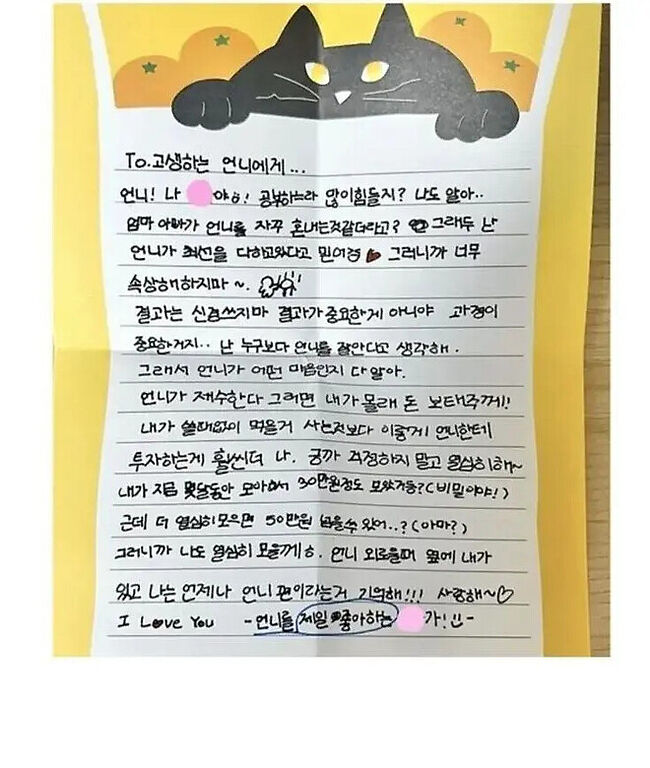 To.고생하는 언니에게...
언니! 나 야ㅎ! 공부하느라 많이힘들지? 나도 알아..
엄마 아빠가 언니를 자꾸 혼내는것같더라고? 그래두 난
언니가 최선을 다하고있다고 믿어 그러니까 너무
속상해하지마~.
결과는 신경쓰지마 결과가 중요한게 아니야 과정이
중요한거지.. 난 누구보다 언니를 잘안다고 생각해.
그래서 언니가 어떤 마음인지 다 알아.
언니가 재수한다 그러면 내가 몰래 돈 보태주께!!
내가 쓸때없이 먹을거 사는것보다 이렇게 언니한테
투자하는게 훨씬더 나. 긍까 걱정하지 말고 열심히해~
내가 지금 몇달동안 모아서 30만원정도 모았거등?(비밀이야!)
근데 더 열심히모으면 50만원 넘을수 있어..?(아마?)
그러니까 나도 열심히 모을께ㅎ. 언니 외로울때 옆에 내가
있고 나는 언제나 언니 편이라는거 기억해!!! 사랑해~♡
I Love You -언니를 제일 좋아하는 가!!-